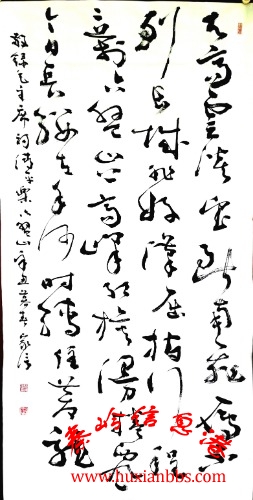 天高云淡望断南飞雁不
到长城非好汉屈指行程
二万六盘山上高峰红旗漫卷西
今日长缨在手何时缚住苍龙
敬录毛主席词清平乐六盘山辛丑暮春
www.huxianbbs.com